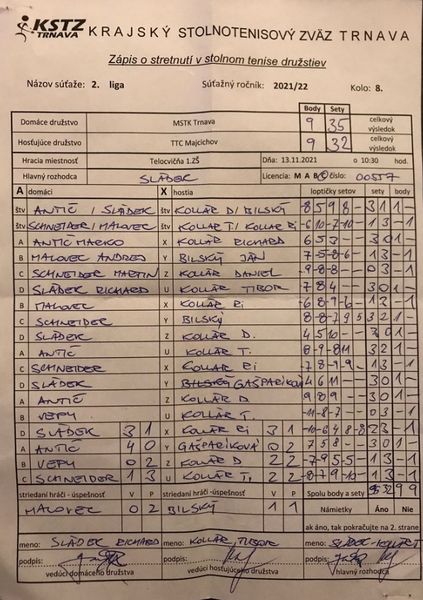 KSTZ TRNAVA KRAJSKÝ STOLNOTENISOVÝ ZVÄZ TRNAVA
Zápis o stretnutí v stolnom tenise družstiev
Názov súťaže: 2. liga Súťažný ročník: 2021/22 Kolo: 8.
Body Sety
Domáce družstvo MSTK Trnava 9 35 celkový výsledok
Hosťujúce družstvo TTC Majcichov 9 32 celkový výsledok
Hracia miestnosť Telocvičňa 1.ZŠ Dňa: 13.11.2021 o 10:30 hod.
Hlavný rozhodca SLÁDEK Licencia: M A B C číslo: 00557
A domáci X hostia loptičky setov sety body
štv ANTIČ / SLÁDEK štv KOLLÁR D / BILSKÝ 8 5 9 8 - 3 1 1 -
štv SCHNEIDER / MALOVEC štv KOLLÁR T / KOLLÁR RI -6 10 -7 -10 - 1 3 - 1
A ANTIČ MARKO X KOLLÁR RICHARD 6 5 3 - - 3 0 1 -
B MALOVEC ANDREJ Y BILSKÝ JÁN 1 3 - 1
C SCHNEIDER MARTIN Z KOLLÁR DANIEL -9 -8 -8 - - 0 3 - 1
D SLÁDEK RICHARD U KOLLÁR TIBOR 7 8 4 - - 3 0 1 -
B MALOVEC X KOLLÁR RI 1 3 - 1
C SCHNEIDER Y BILSKÝ 3 2 1 -
D SLÁDEK Z KOLLÁR D. 4 5 10 - - 3 0 1 -
A ANTIČ U KOLLÁR T. 3 2 1 -
C SCHNEIDER X KOLLÁR RI 1 3 - 1
D SLÁDEK Y GAŠPARÍKOVÁ 4 6 11 - - 3 0 1 -
A ANTIČ Z KOLLÁR D 9 8 9 - - 3 0 1 -
B VEPY U KOLLÁR T. -11 -8 -7 - - 0 3 - 1
D SLÁDEK 3 1 X KOLLÁR RI 3 1 2 3 - 1
A ANTIČ 4 0 Y GAŠPARÍKOVÁ 0 2 7 5 8 - - 3 0 1 -
B VEPY 0 2 Z KOLLÁR D 2 2 1 3 - 1
C SCHNEIDER 1 3 U KOLLÁR T. 2 2 1 3 - 1
striedaní hráči - úspešnosť V P striedaní hráči - úspešnosť V P Spolu body a sety 35 32 9 9
MALOVEC 0 2 BILSKÝ 1 1 Námietky Áno Nie
ak áno, tak pokračujte na 2. strane
meno: SLÁDEK RICHARD meno: KOLLÁR TIBOR meno:
podpis: podpis: podpis:
vedúci domáceho družstva vedúci hosťujúceho družstva hlavný rozhodca